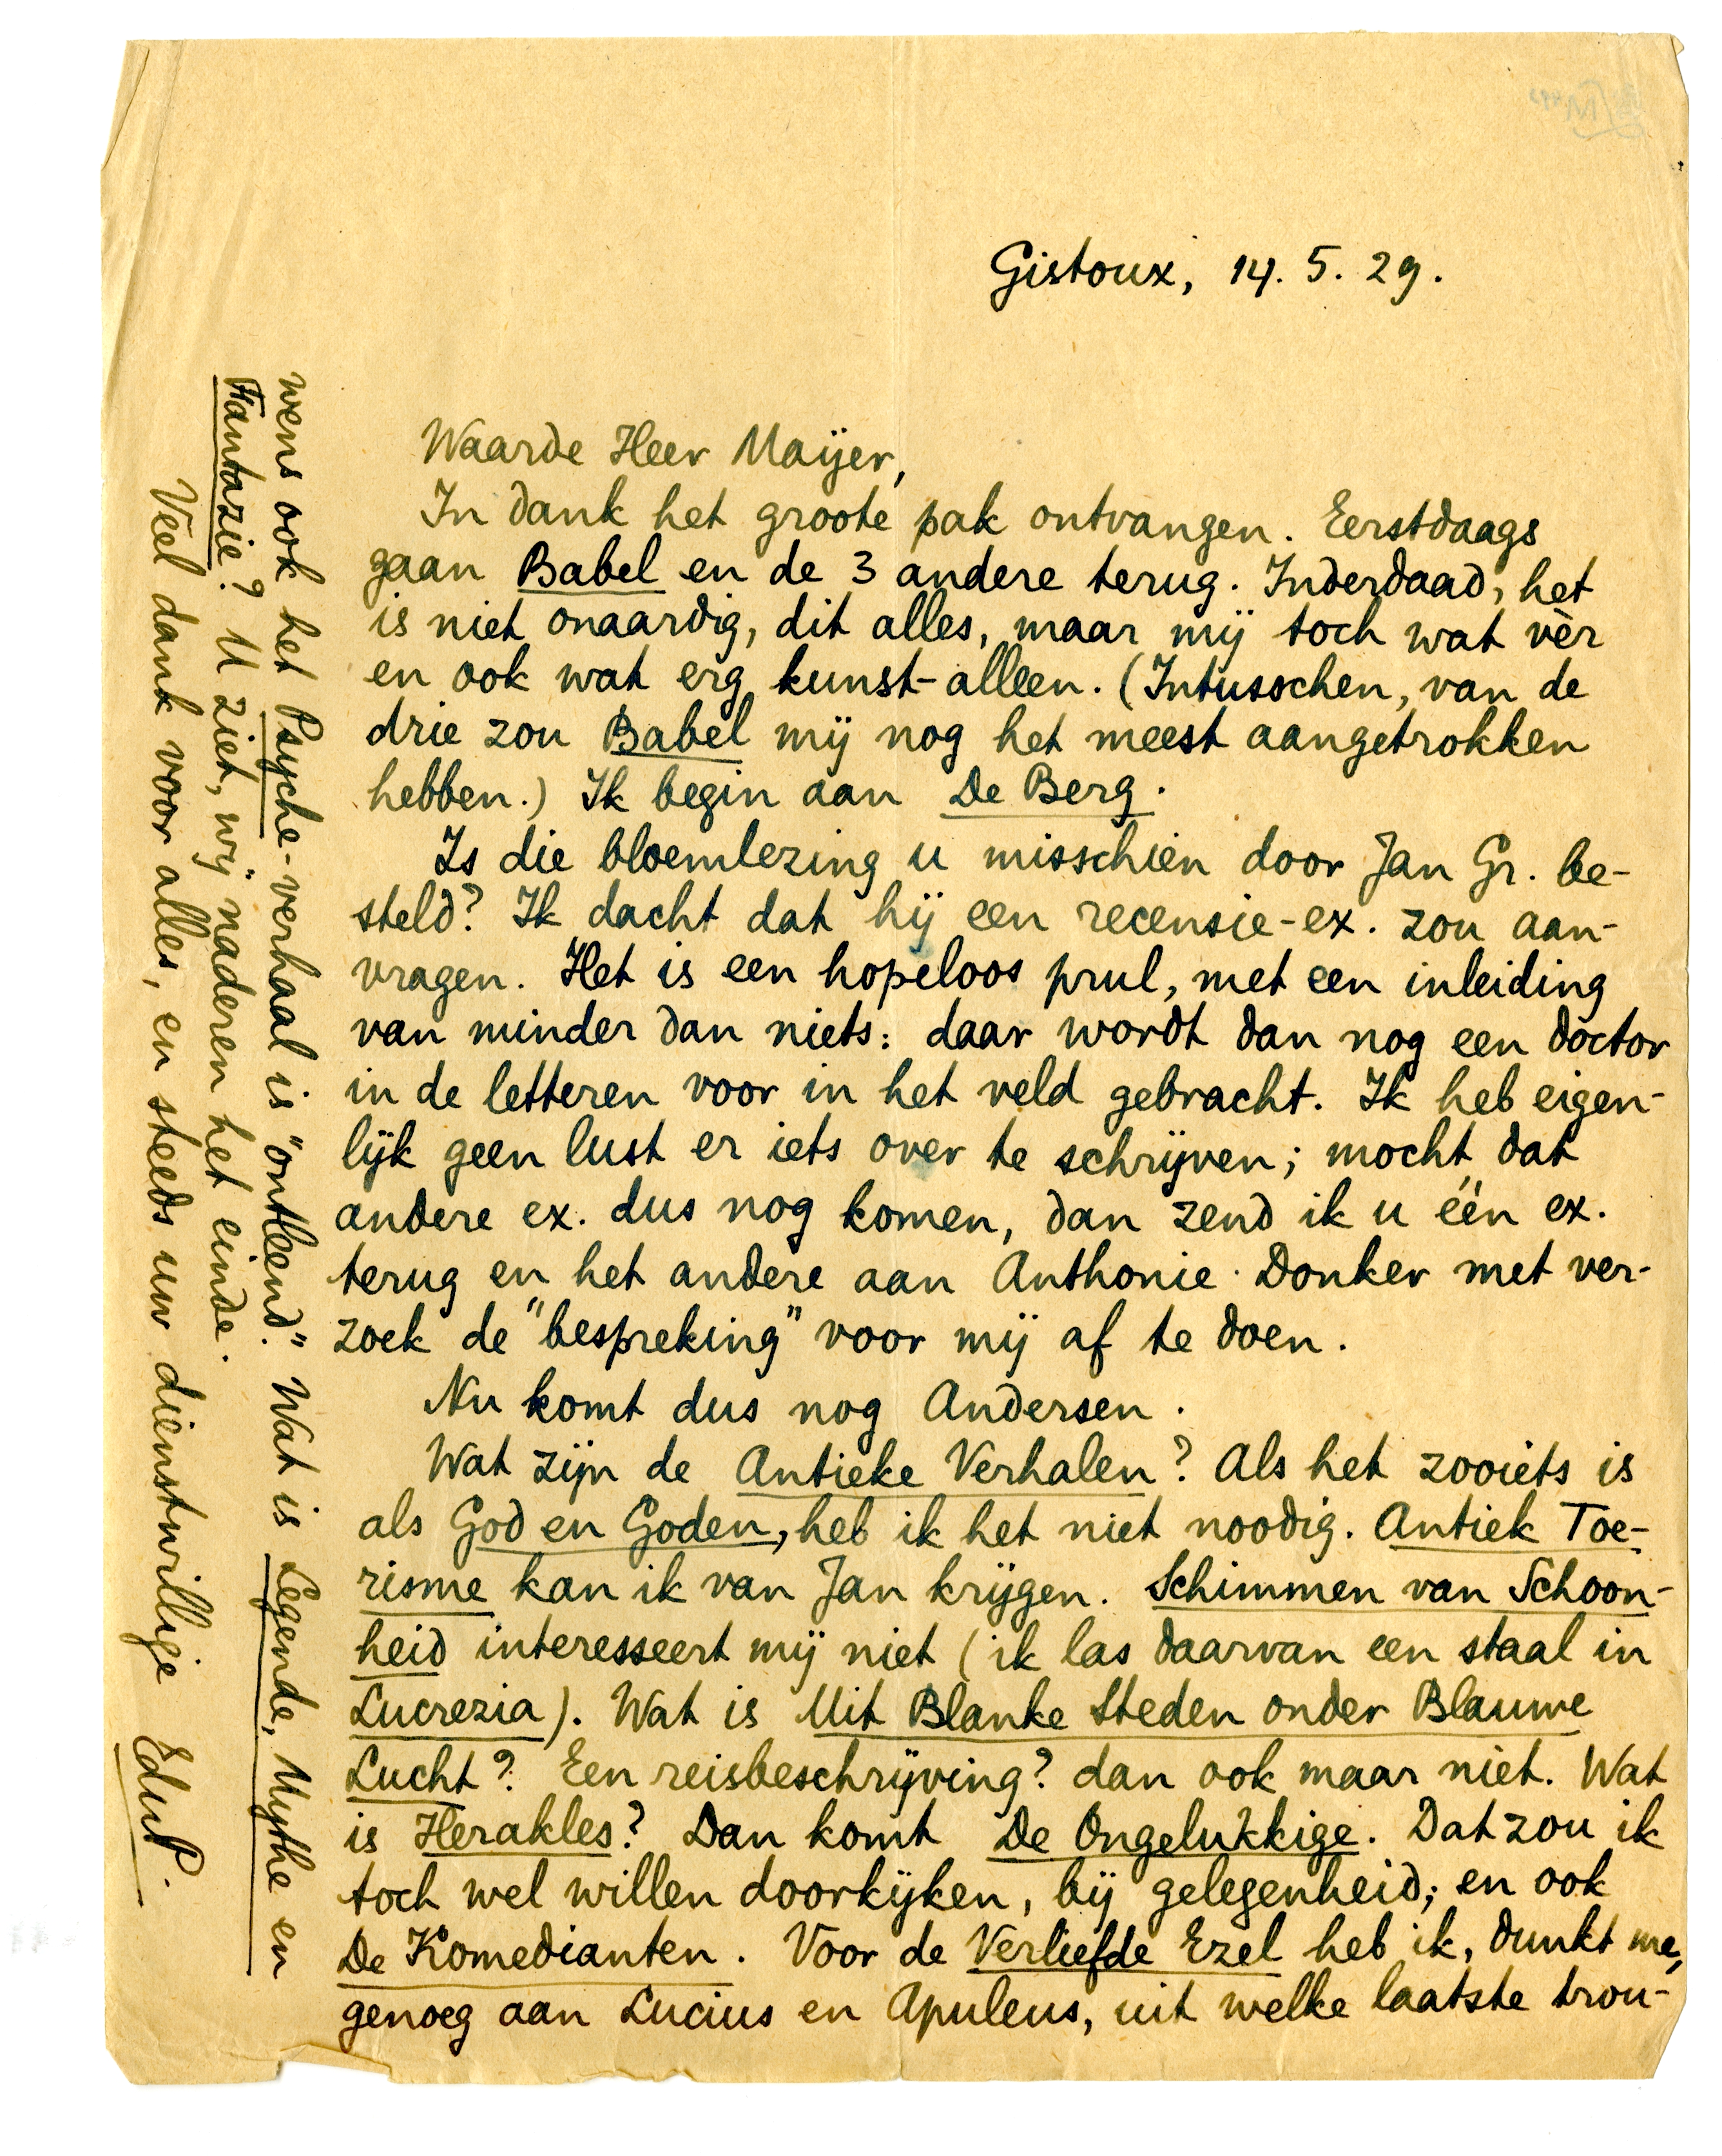 Gistoux, 14. 5. 29.
Waarde Heer Maijer,
In dank het groote pak ontvangen. Eerstdaags
gaan Babel en de 3 andere terug. Inderdaad, het
is niet onaardig, dit alles, maar mij toch wat vèr
en ook wat erg kunst-alleen. (Intusschen, van de
drie zou Babel mij nog het meest aangetrokken
hebben.) Ik begin aan De Berg.
Is die bloemlezing u misschien door Jan Gr. be-
steld? Ik dacht dat hij een recensie-ex. zou aan-
vragen. Het is een hopeloos prul, met een inleiding
van minder dan niets: daar wordt dan nog een doctor
in de letteren voor in het veld gebracht. Ik heb eigen-
lijk geen lust er iets over te schrijven; mocht dat
andere ex. dus nog komen, dan zend ik u één ex.
terug en het andere aan Anthonie Donker met ver-
zoek de "bespreking" voor mij af te doen.
Nu komt dus nog Andersen.
Wat zijn de Antieke Verhalen? Als het zooiets is
als God en Goden, heb ik het niet noodig. Antiek Toe-
risme kan ik van Jan krijgen. Schimmen van Schoon-
heid interesseert mij niet (ik las daarvan een staal in
Lucrezia). Wat is Uit Blanke Steden onder Blauwe
Lucht? Een reisbeschrijving? dan ook maar niet. Wat
is Herakles? Dan komt De Ongelukkige. Dat zou ik
toch wel willen doorkijken, bij gelegenheid; en ook
De Komedianten. Voor de Verliefde Ezel heb ik, dunkt me,
genoeg aan Lucius en Apuleus, uit welke laatste trou-
wens ook het Psyche-verhaal is "ontleend." Wat is Legende, Mythe en
Fantazie? U ziet, wij naderen het einde.
Veel dank voor alles, en steeds uw dienstwillige
EduP.